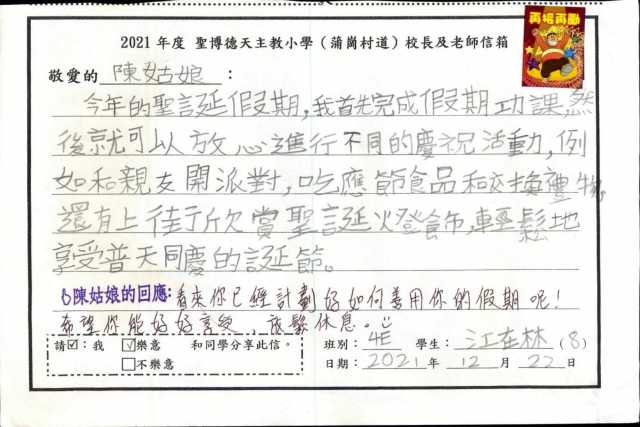 再接再勵
2021 年度 聖博德天主教小學（蒲崗村道）校長及老師信箱
敬愛的 陳姑娘 ：
今年的聖誕假期,我首先完成假期功課,然
後就可以放心進行不同的慶祝活動,例
如和親友開派對,吃應節食品和交換禮物,
還有上街欣賞聖誕燈飾,輕鬆地
享受普天同慶的誕節。
陳姑娘的回應: 看來你已經計劃好如何善用你的假期呢!
希望你能好好享受，放鬆休息。
請☑：我 ☑樂意 和同學分享此信。
□不樂意
班別： 4E 學生： 江在林 (8)
日期： 2021 年 12 月 22 日